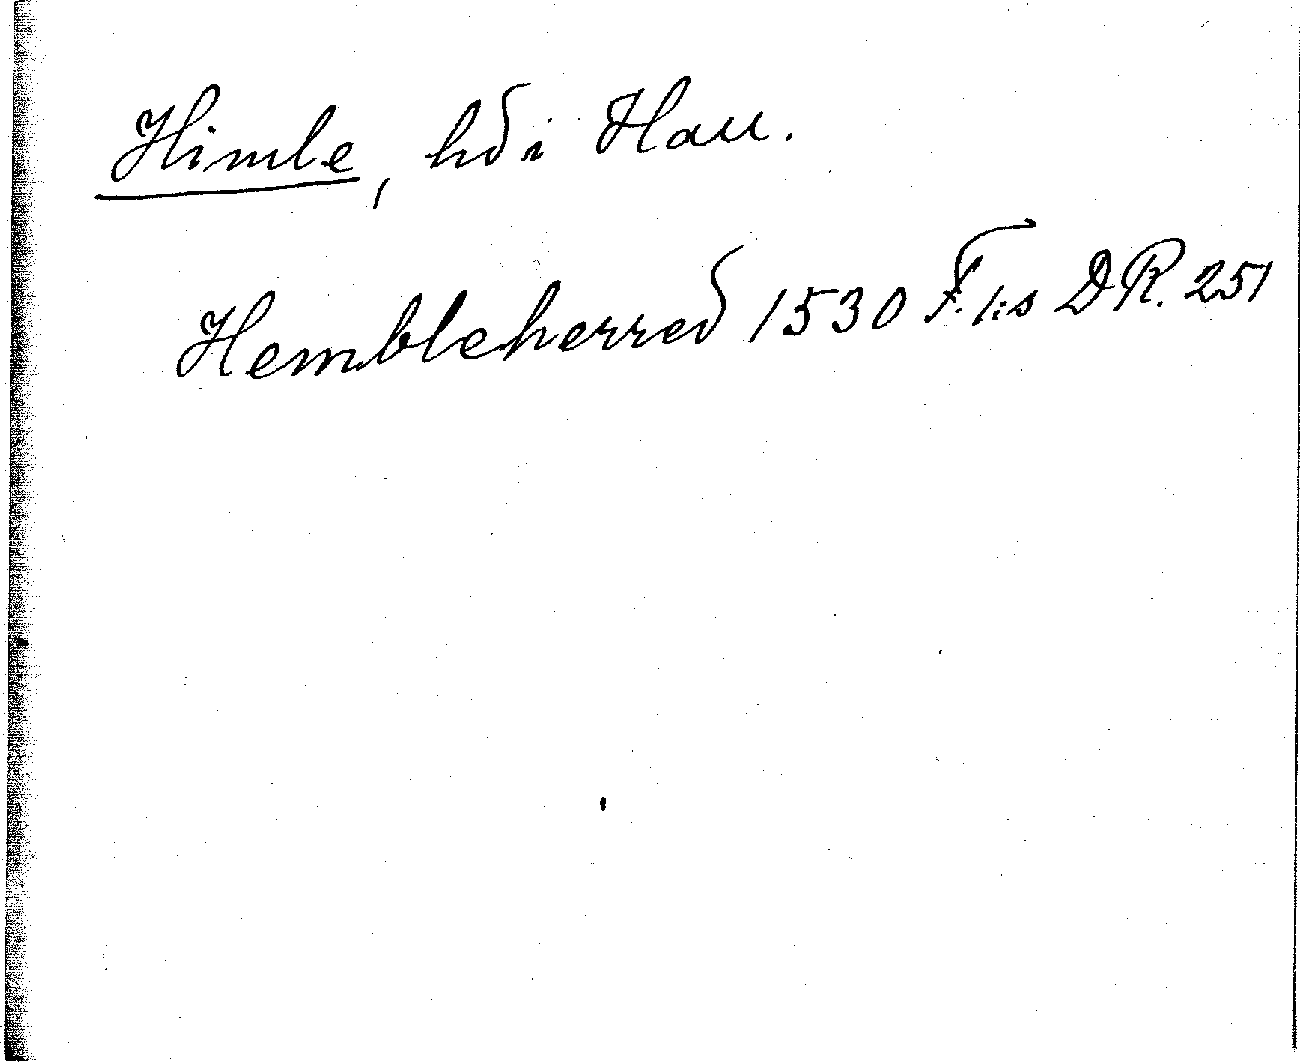 Himle, hd i Hall.
Hembleherred 1530 F. 1:s DR. 251